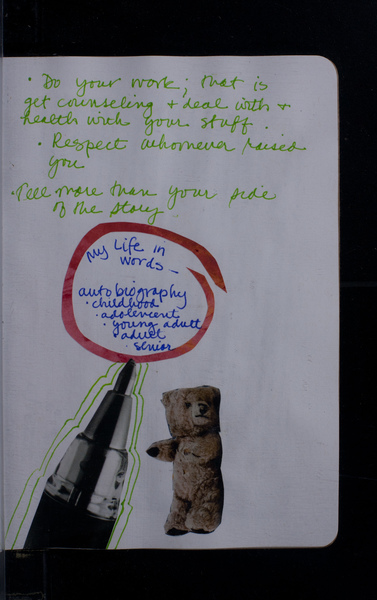 • Do your work; that is
get counseling + deal with +
health with your stuff.
• Respect whomever raised
you
• Tell more than your side
of the story
My Life in
words –
autobiography
• childhood
• adolencent
• young adult
• adult
• senior